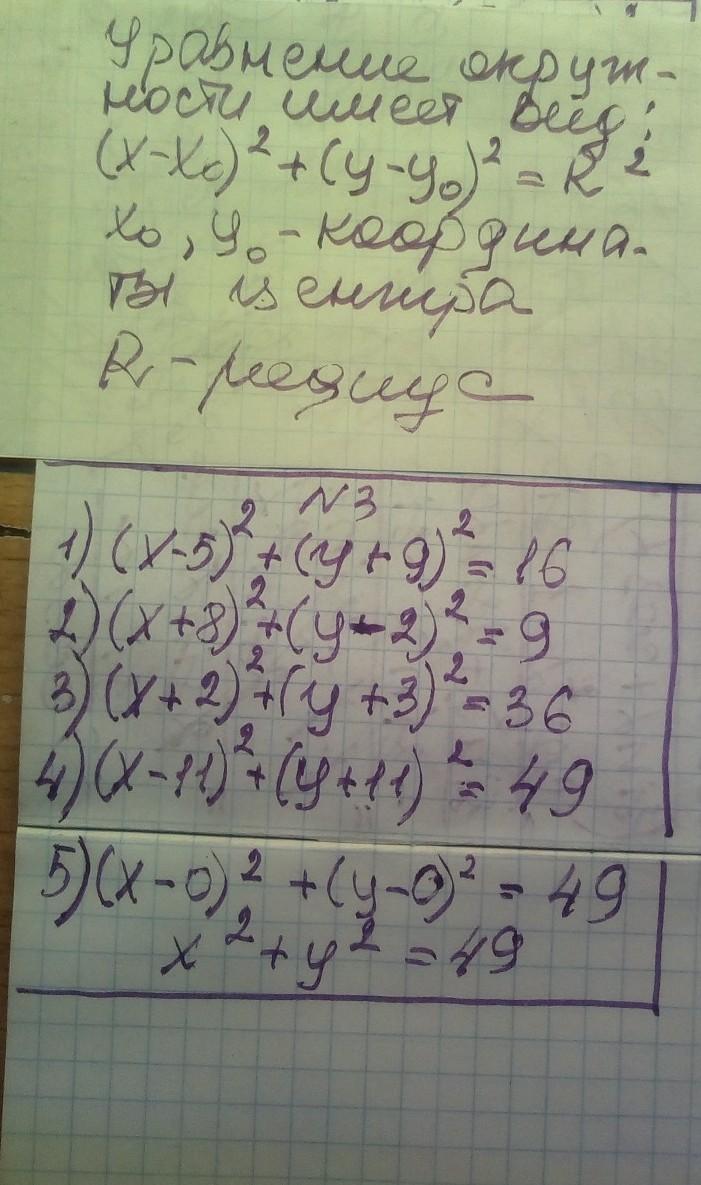 Уравнение окруж-
ности имеет вид:
(x-x₀)² + (y-y₀)² = R²
x₀, y₀ - координа-
ты центра
R - радиус
N3
1) (x-5)² + (y+9)² = 16
2) (x+8)² + (y-2)² = 9
3) (x+2)² + (y+3)² = 36
4) (x-11)² + (y+11)² = 49
5) (x-0)² + (y-0)² = 49
x² + y² = 49